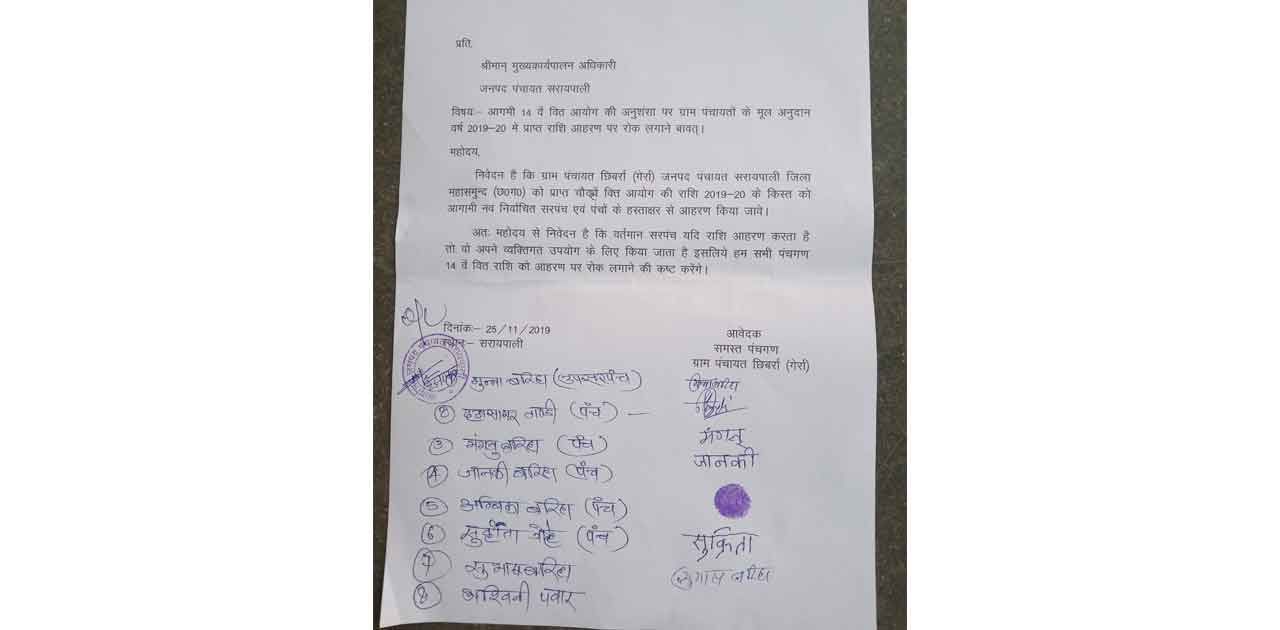 प्रति,
श्रीमान् मुख्यकार्यपालन अधिकारी
जनपद पंचायत सरायपाली
विषयः– आगमी 14 वें वित आयोग की अनुशंसा पर ग्राम पंचायतों के मूल अनुदान
वर्ष 2019–20 मे प्राप्त राशि आहरण पर रोक लगाने बावत्।
महोदय,
निवेदन है कि ग्राम पंचायत छिबर्रा (गेर्रा) जनपद पंचायत सरायपाली जिला
महासमुन्द (छ0ग0) को प्राप्त चौदहवें वित्त आयोग की राशि 2019–20 के किस्त को
आगामी नव निर्वाचित सरपंच एवं पंचों के हस्ताक्षर से आहरण किया जावे।
अतः महोदय से निवेदन है कि वर्तमान सरपंच यदि राशि आहरण करता है
तो वो अपने व्यक्तिगत उपयोग के लिए किया जाता है इसलिये हम सभी पंचगण
14 वें वित राशि को आहरण पर रोक लगाने की कष्ट करेंगे।
दिनांकः– 25/11/2019
आवेदक
सरायपाली
समस्त पंचगण
ग्राम पंचायत छिबर्रा (गेर्रा)
मुन्ना बरिहा (उपसरपंच)
② (पंच) —
③ मंगलु बरिहा (पंच) मंगलू
④ जानकी बरिहा (पंच) जानकी
⑤ अम्बिका बरिहा (पंच)
⑥ (पंच) सुक्रिता
⑦ सुभाष बरिहा
⑧ अश्विनी पवार